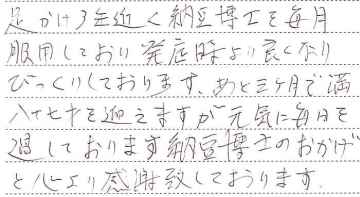 足かけ3年近く納豆博士を毎月
服用しており発症時より良くなり
びっくりしております、あと三ヶ月で満
八十七才を迎えますが元気に毎日を
過しております納豆博士のおかげ
と心より感謝致しております.